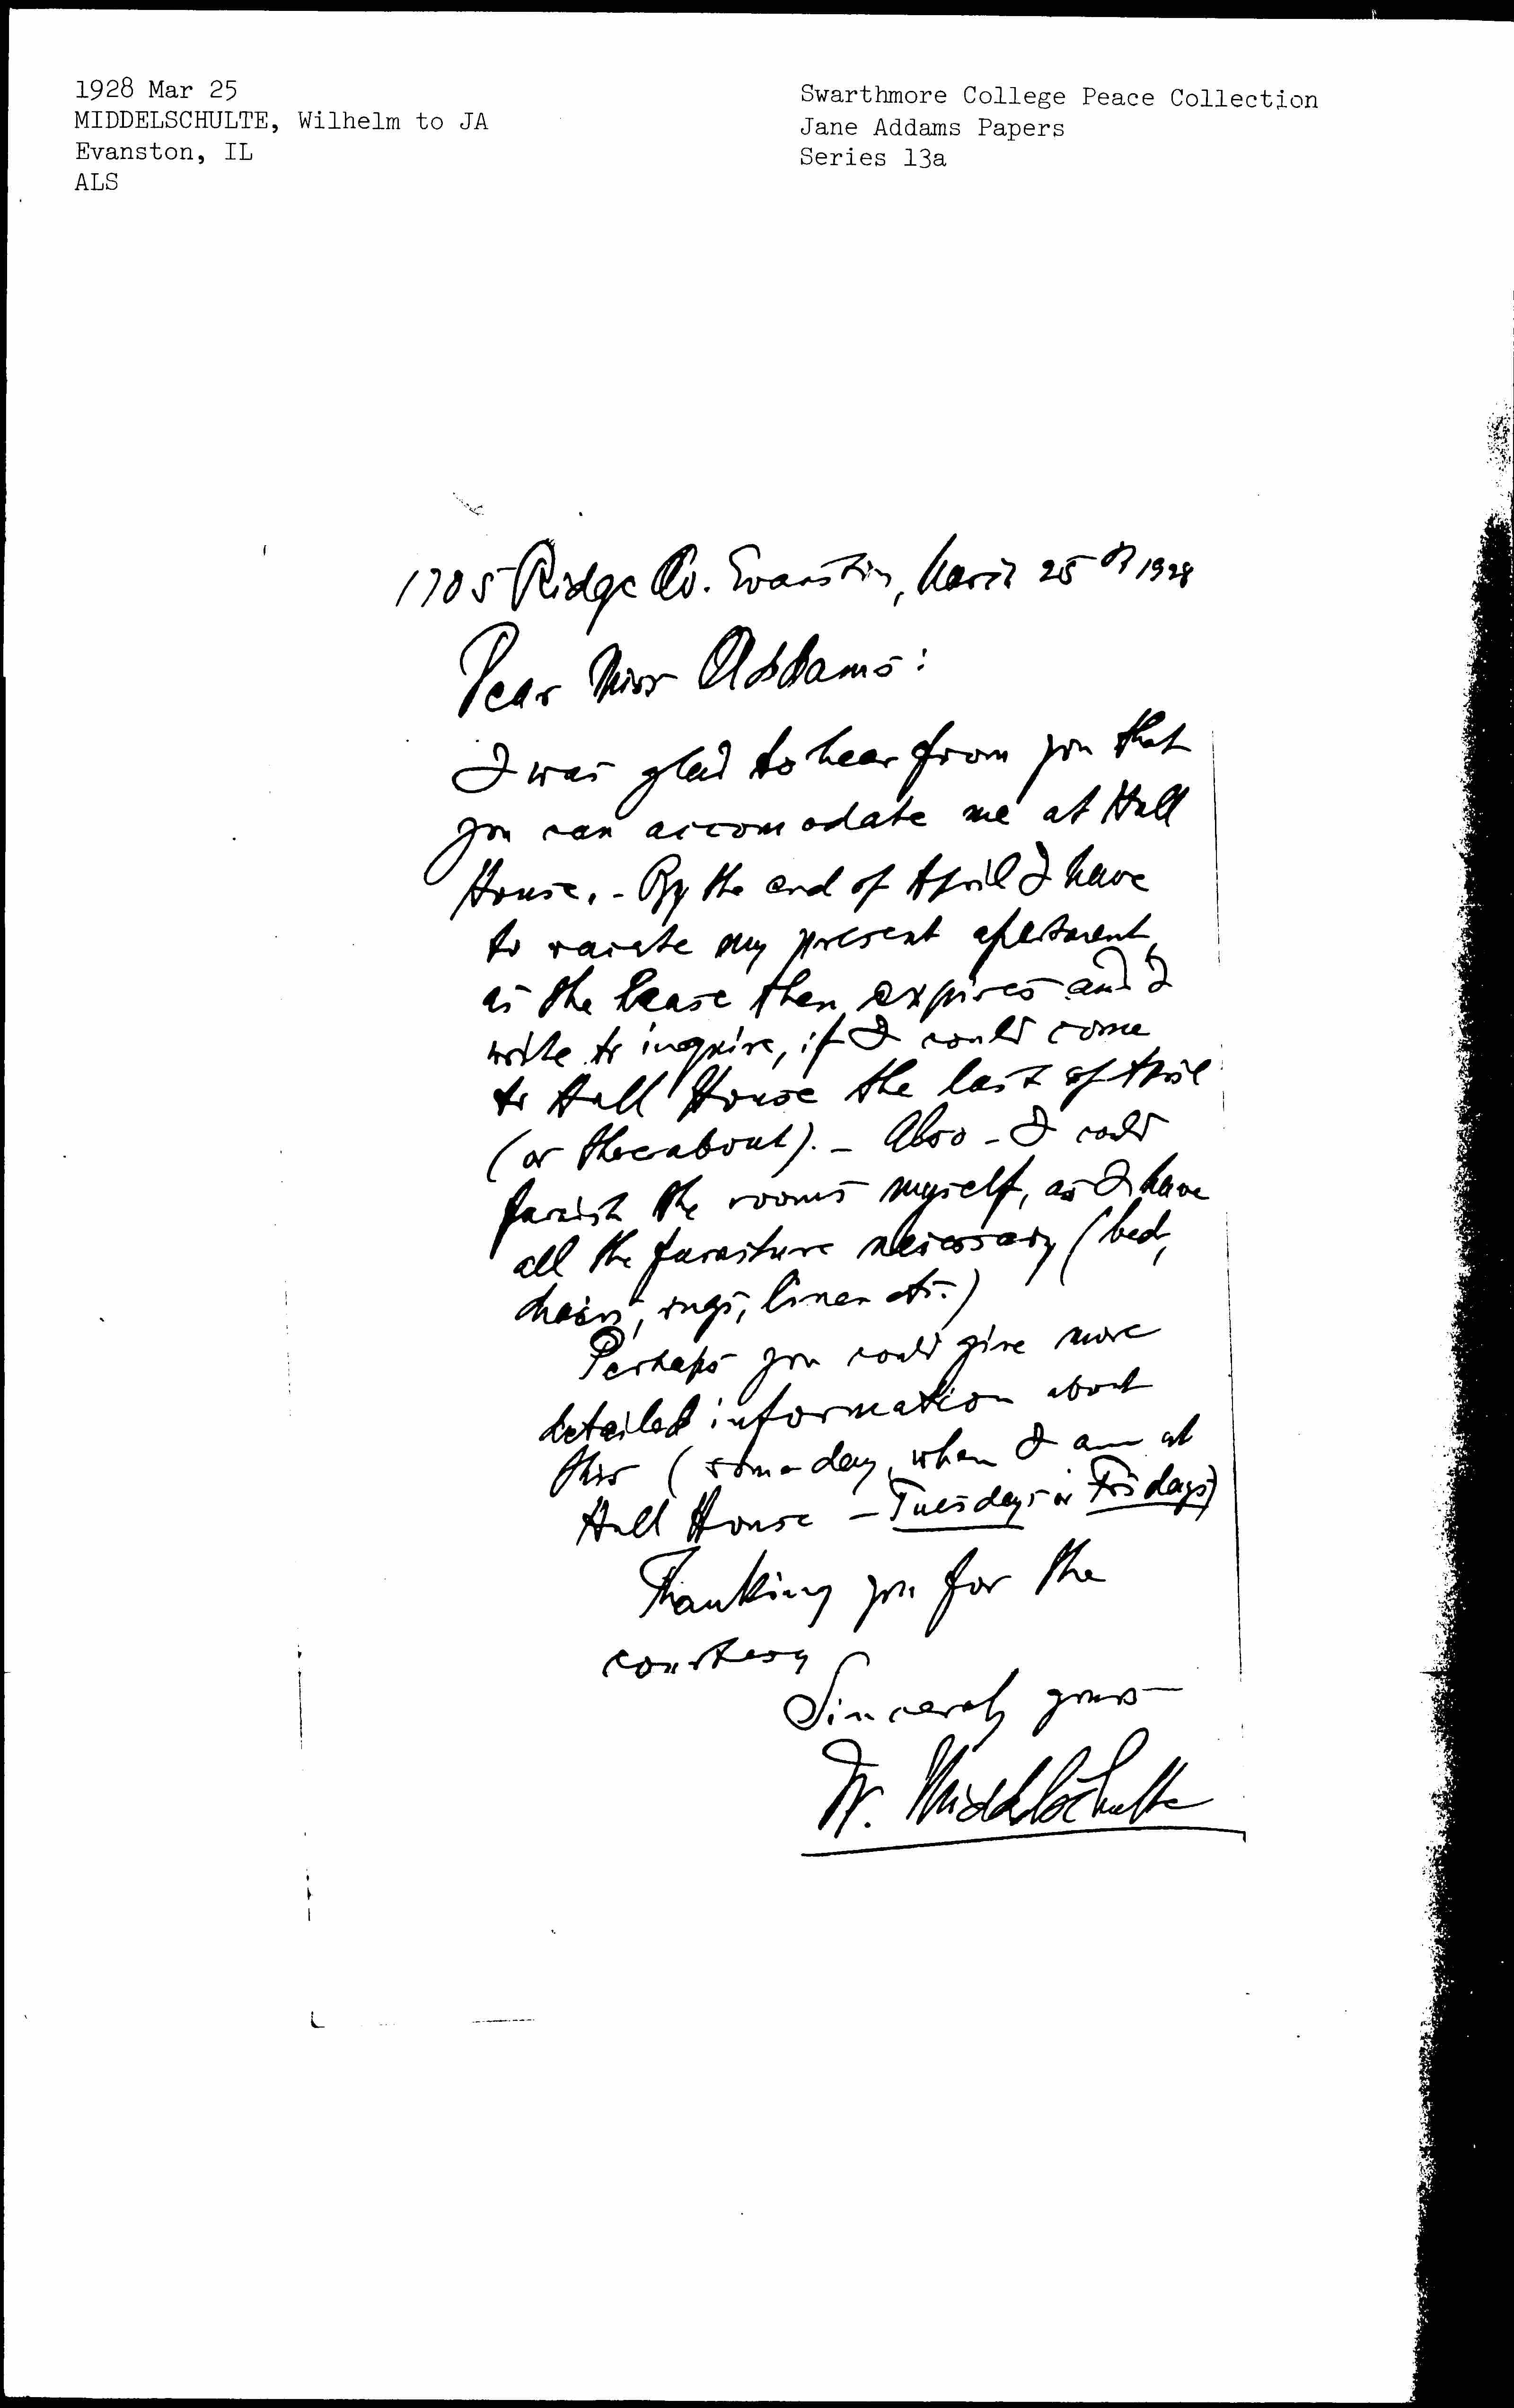 1928 Mar 25
MIDDELSCHULTE, Wilhelm to JA
Evanston, IL
ALS
Swarthmore College Peace Collection
Jane Addams Papers
Series 13a
1705 Ridge Av. Evanston, March 25th 1928
Dear Miss Addams:
I was glad to hear from you that
you can accomodate me at Hull
House. - By the end of April I have
to vacate my present apartment,
as the lease then expires and I
write to inquire, if I could come
to Hull House the last of April
(or thereabout). - Also - I could
furnish the rooms myself, as I have
all the furniture necessary (bed,
chairs, rugs, linen etc.)
Perhaps you could give more
detailed information about
this (some day, when I am at
Hull House - Tuesdays or Fridays)
Thanking you for the
courtesy
Sincerely yours
W. Middelschulte